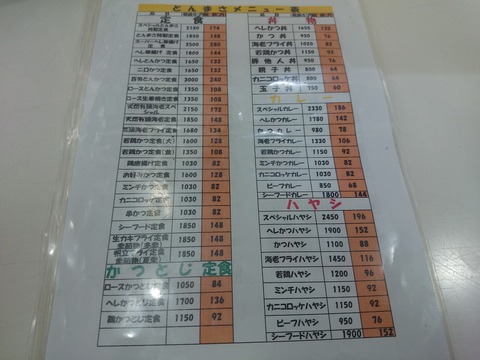 とんまさメニュー表
定食
スペシャルとんまさ特製定食 2180 174
とんまさ特製定食 1850 148
スーパーヘレ柳揚げ定食 3500 280
ヘレ柳揚げ 定食 1800 144
ヘレとんかつ定食 1650 132
一口かつ定食 1650 132
百匁とんかつ定食 3000 240
ロースとんかつ定食 1350 108
ロース生姜焼き定食 1350 108
天然有頭海老スペシャル 2150 172
天然有頭海老定食 1850 148
有頭海老フライ定食 1680 134
若鶏かつ定食(大) 1600 128
若鶏かつ定食(並) 1350 108
鶏唐揚げ定食 1030 82
お好みかつ定食 1600 128
ミンチかつ定食 1030 82
カニコロッケ定食 1030 82
串かつ定食 1030 82
シーフード定食 1850 148
生カキフライ定食 1850 148
帆立フライ定食 1850 148
かつとじ定食
ロースかつとじ定食 1050 84
ヘレかつとじ定食 1700 136
鶏かつとじ定食 1150 92
丼物
ヘレかつ丼 1650 132
かつ丼 950 76
海老フライ丼 1020 82
若鶏かつ丼 1150 92
豚他人丼 950 76
親子丼 800 64
カニコロッケ丼 850 68
玉子丼 750 60
カレー
スペシャルカレー 2330 186
ヘレかつカレー 1780 142
かつカレー 980 78
海老フライカレー 1330 106
若鶏カレー 1150 92
ミンチかつカレー 1030 82
カニコロッケカレー 1030 82
ビーフカレー 850 68
シーフードカレー 1800 144
ハヤシ
スペシャルハヤシ 2450 196
ヘレかつハヤシ 1900 152
かつハヤシ 1100 88
海老フライハヤシ 1450 116
若鶏ハヤシ 1200 96
ミンチハヤシ 1150 92
カニコロッケハヤシ 1150 92
ビーフハヤシ 950 76
シーフードハヤシ 1900 152